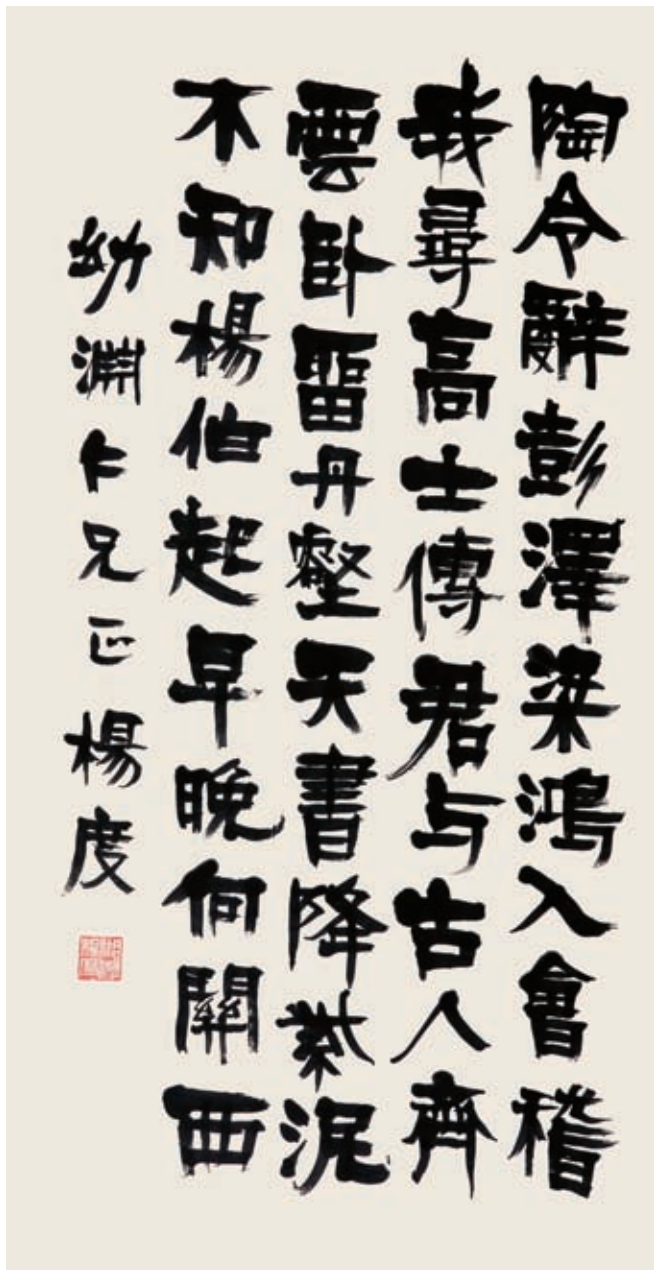 陶令辭彭澤梁鴻入會稽
我尋高士傳君与古人齊
雲卧留丹壑天書降紫泥
不知楊伯起早晚何關西
幼淵仁兄正楊度